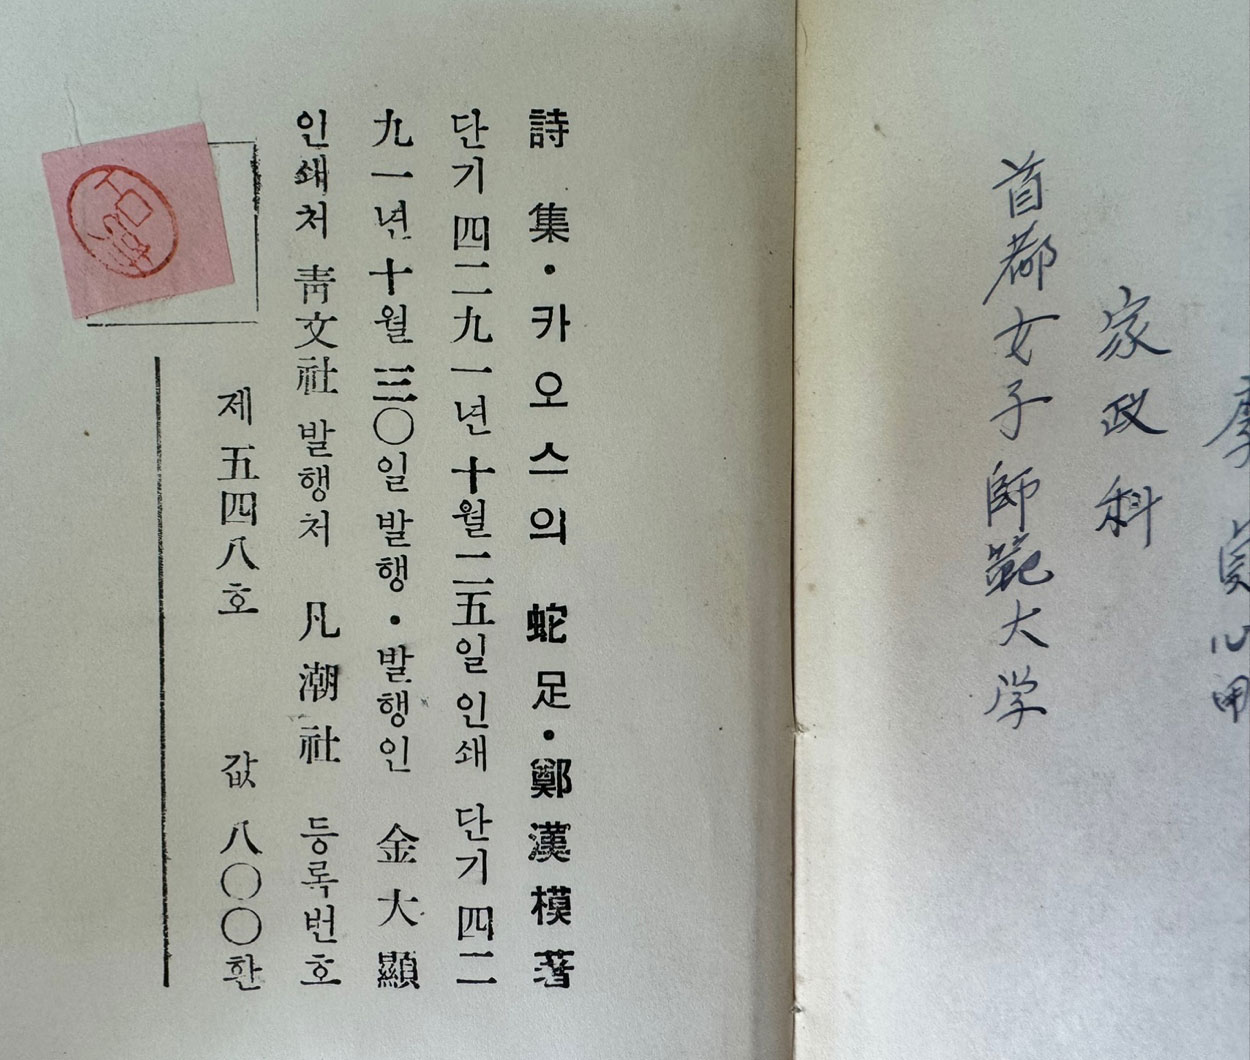 詩集・카오스의 蛇足・鄭漢模 著
단기 四二九一년 十월 二五일 인쇄 단기 四二
九一년 十월 三〇일 발행・발행인 金大顯
인쇄처 靑文社 발행처 凡潮社 등록번호
제 五四八호 값 八〇〇환
首都女子師範大学
家政科